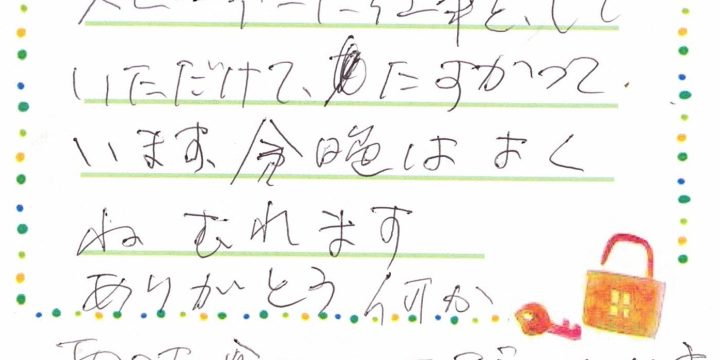 た仕事をして
いただけて、たすかって
います、今晩は よく
ねむれます
ありがとう 何か